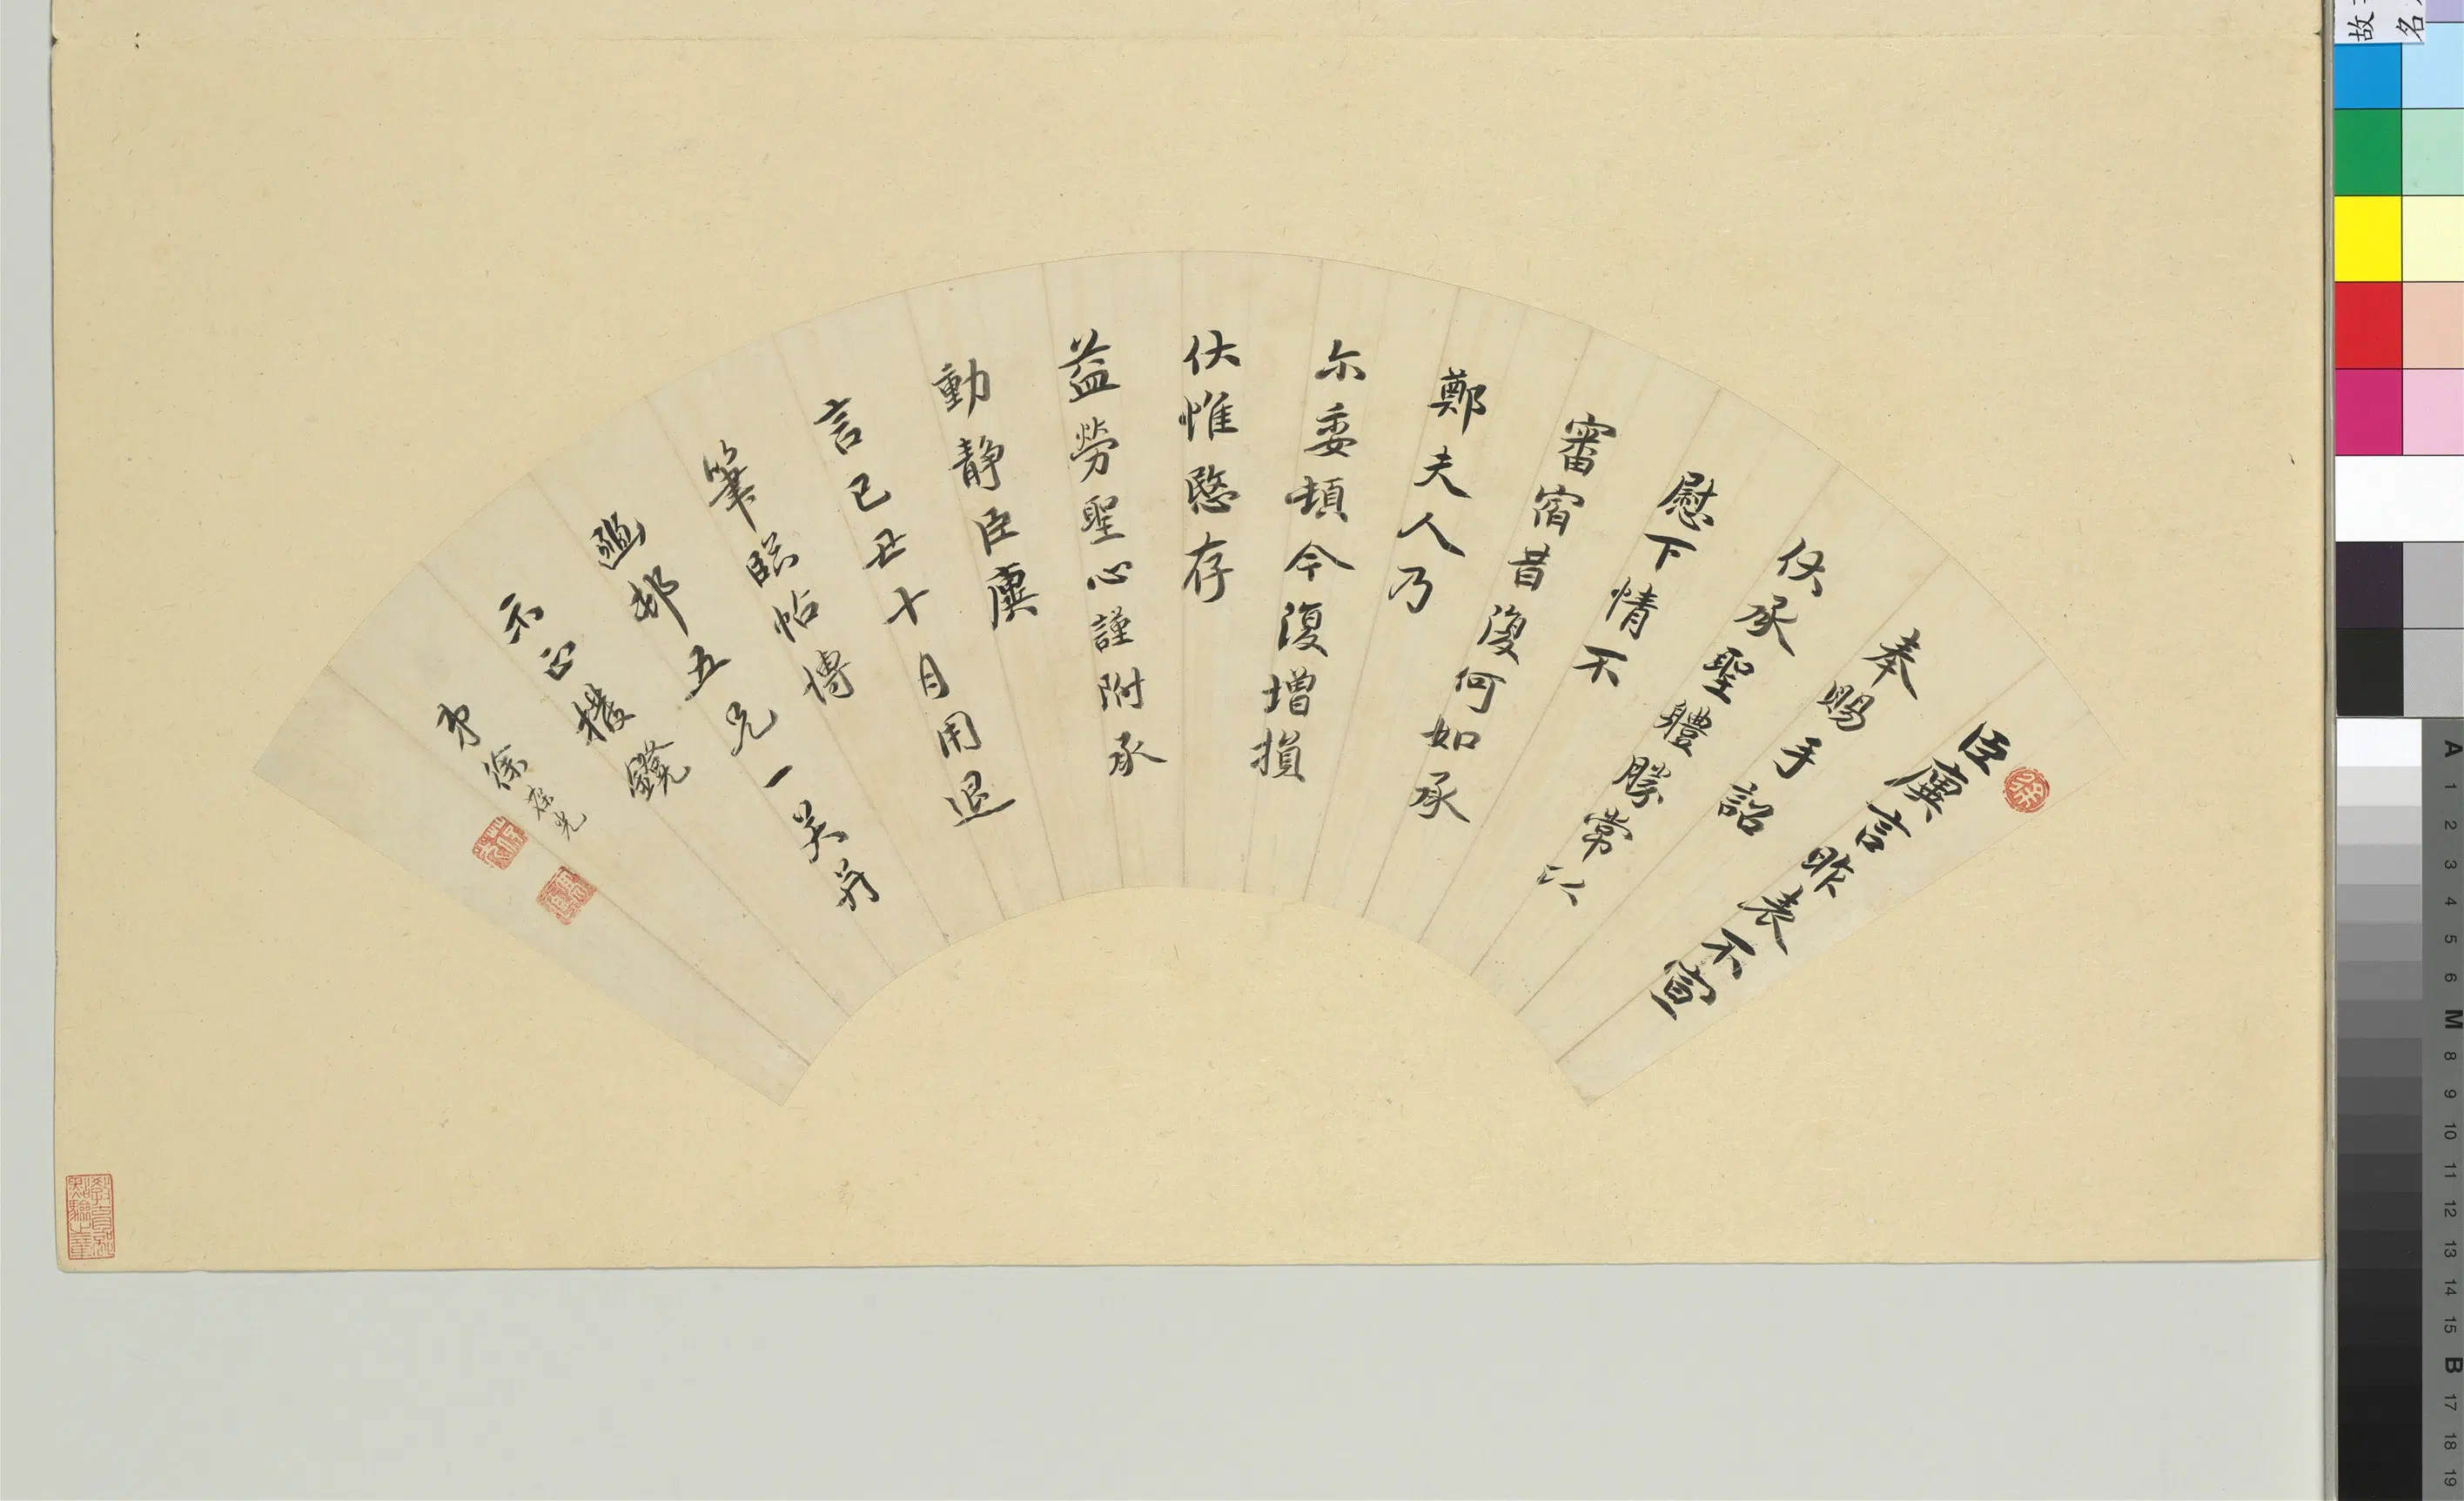 臣廙言昨表不宣
奉賜手詔
伏承聖體勝常以
慰下情不
審宿昔復何如承
鄭夫人乃
尔委頓今復增損
伏惟愍存
益勞聖心謹附承
動靜臣廙
言己丑十月用退
筆臨帖博
五兄一笑并
示正
弟徐
故
名
A
1
2
3
4
5
6
M
8
9
10
11
12
13
14
15
B
17
18
19